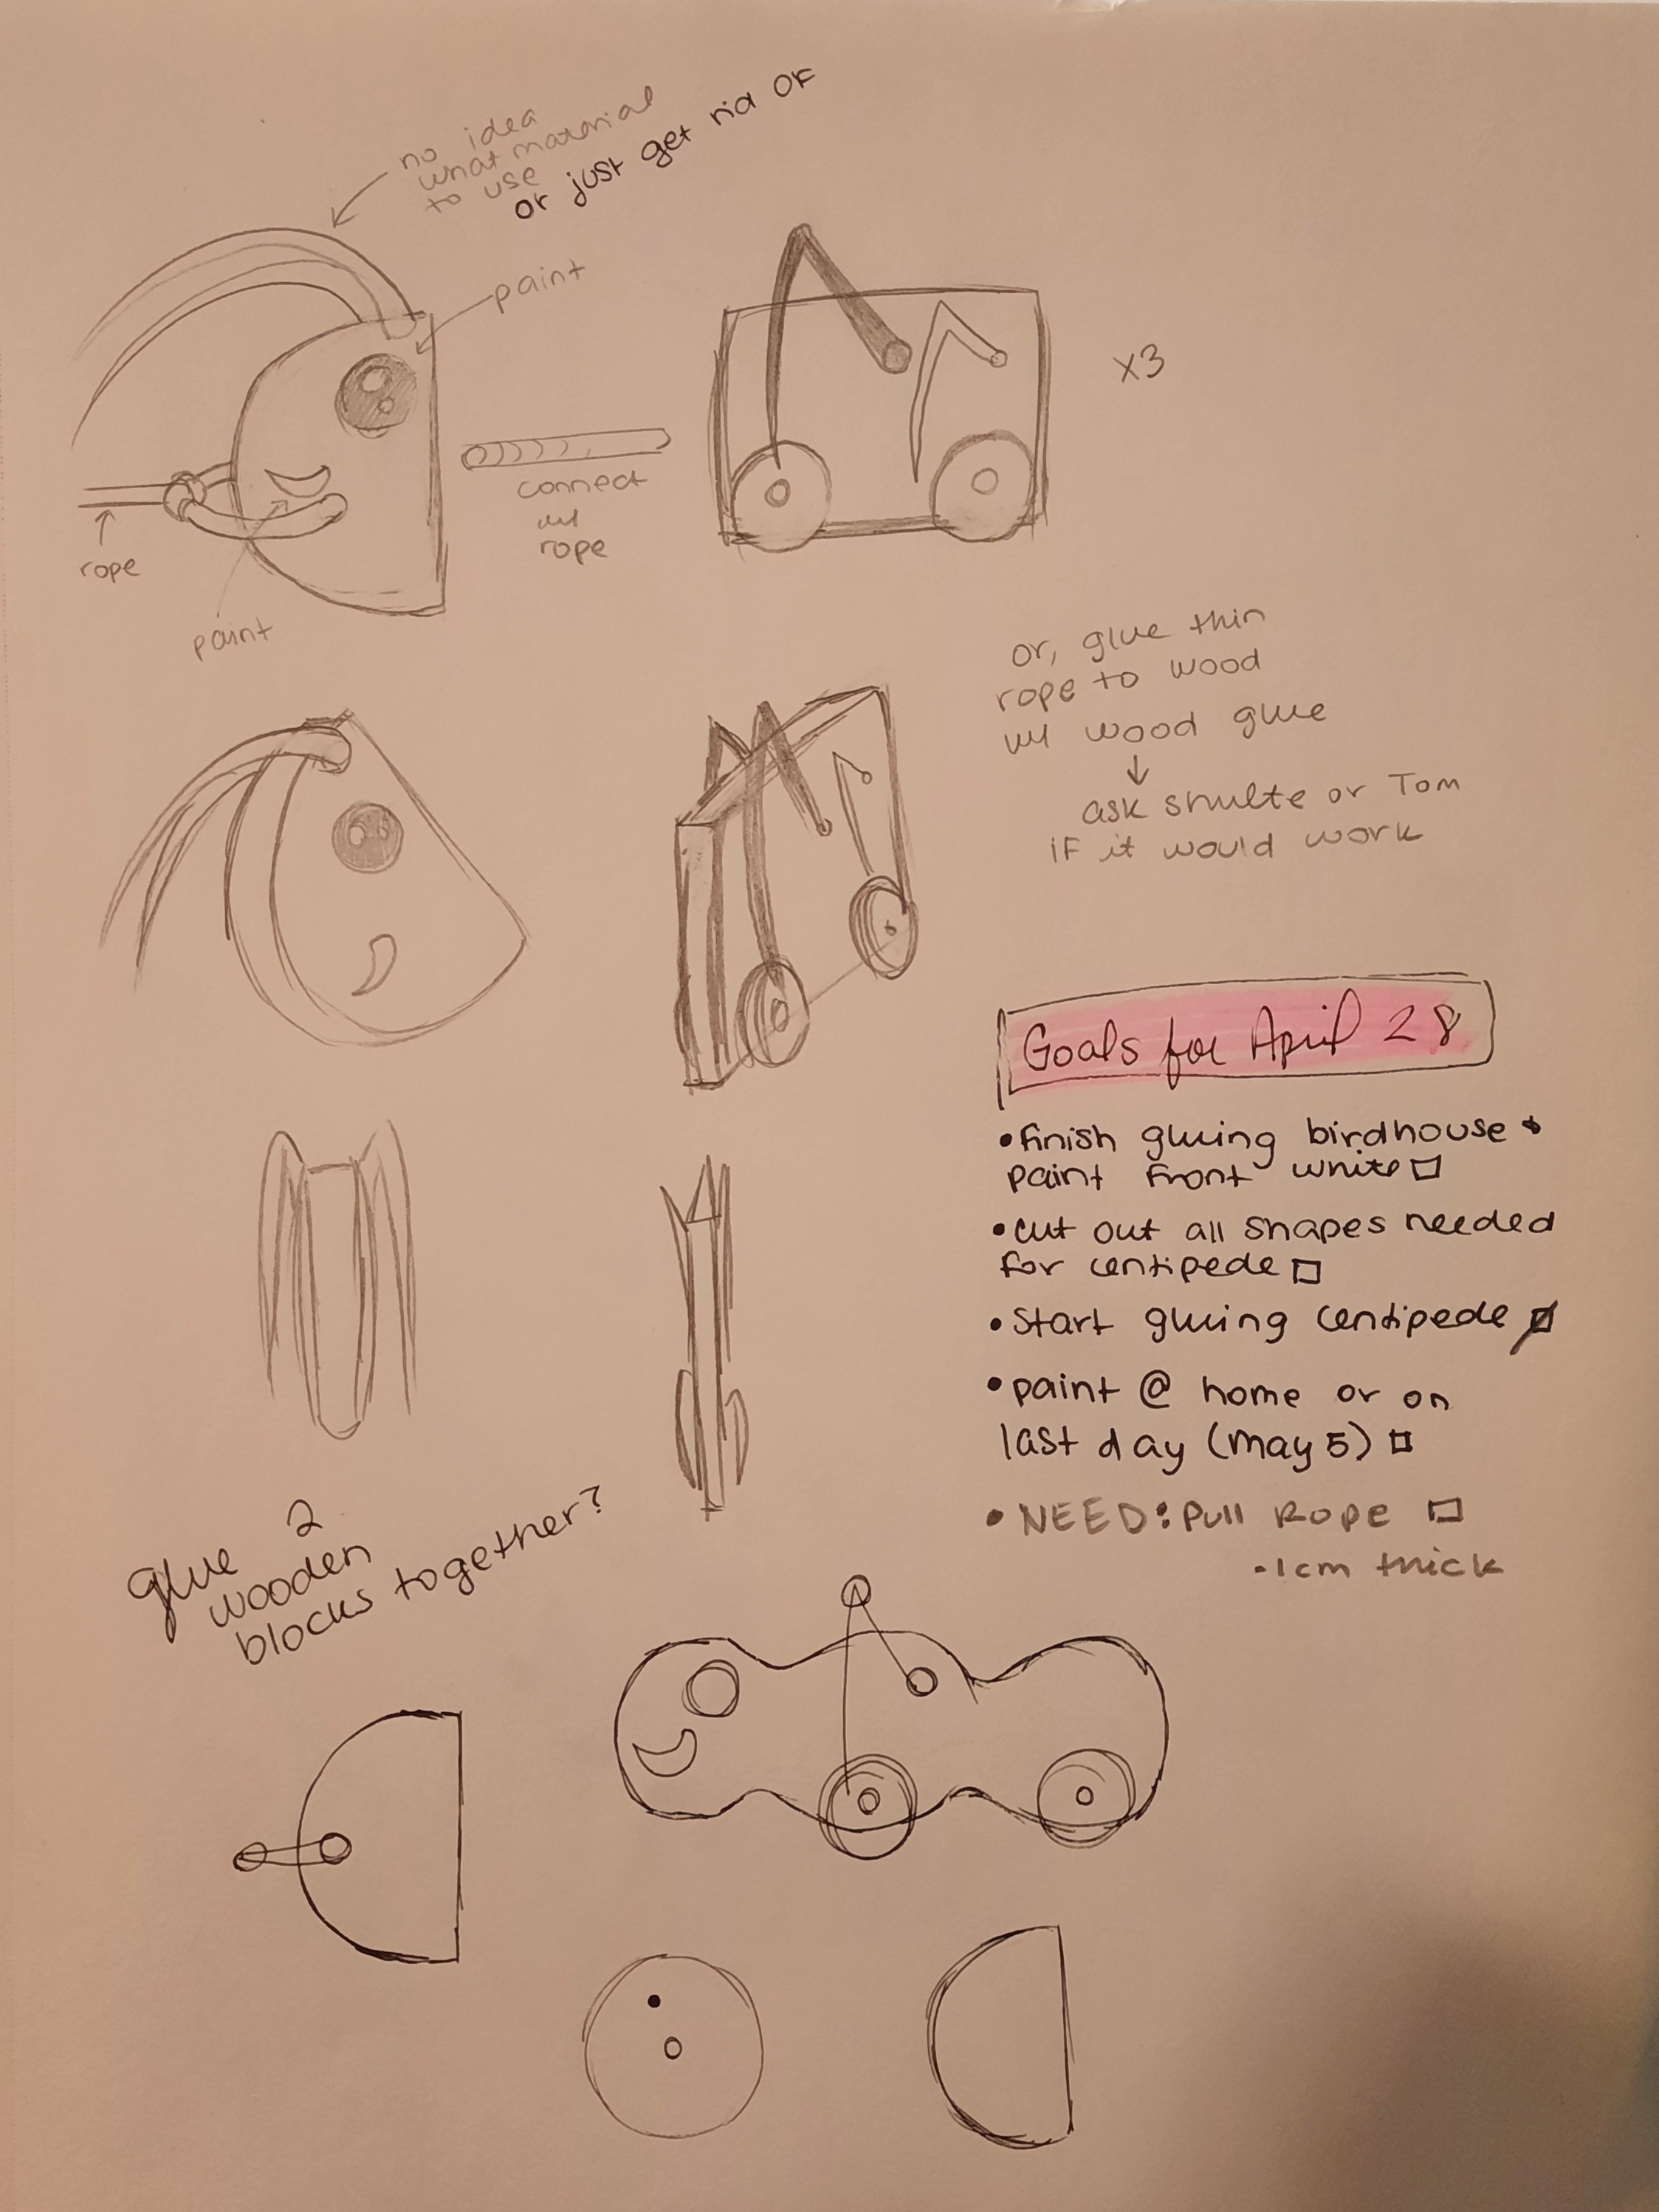 no idea
what material
to use
or just get rid of
paint
x3
connect
w/
rope
rope
paint
or, glue thin
rope to wood
w/ wood glue
↓
ask shulte or Tom
if it would work
Goals for April 28
•finish gluing birdhouse &
paint front white □
•cut out all shapes needed
for centipede □
•start gluing centipede □
•paint @ home or on
last day (may 5) □
•NEED: Pull ROPE □
-1cm thick
glue 2
wooden
blocks together?